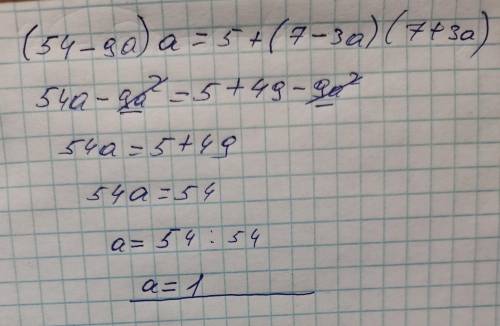 (54-9a)a=5+(7-3a)(7+3a)
54a-9a²=5+49-9a²
54a=5+49
54a=54
a=54:54
a=1